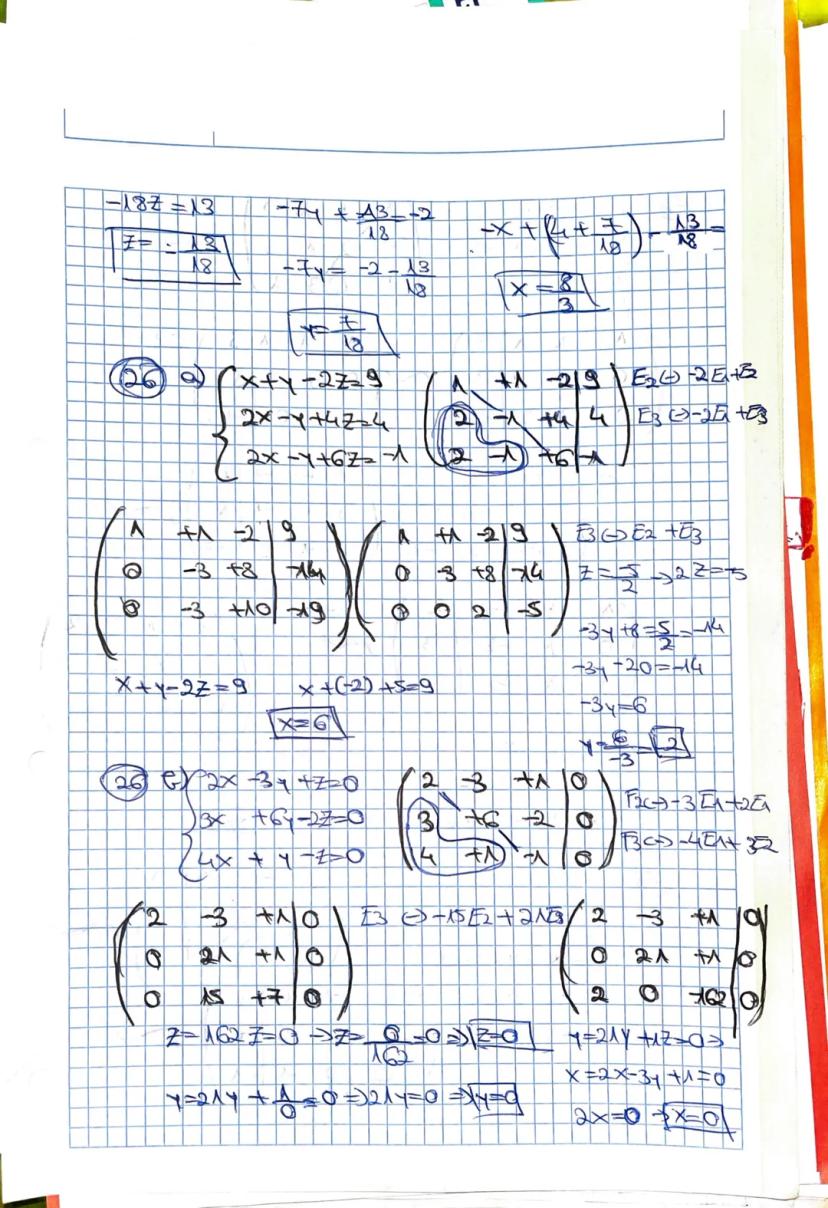 -18Z = 13
Z = - 13/18
-7y + 13/18 = -2
-7y = -2 - 13/18
y = 7/18
-x + (4 + 7/18) - 13/18 =
x = 8/3
26 a) { x+y-2z=9
2x-y+4z=4
2x-y+6z=-1
( 1 +1 -2 | 9 )
( 2 -1 +4 | 4 )
( 2 -1 +6 | -1 )
E2 ↔ -2E1+E2
E3 ↔ -2E1+E3
( 1 +1 -2 | 9 )
( 0 -3 +8 | -14 )
( 0 -3 +10 | -19 )
( 1 +1 -2 | 9 )
( 0 -3 +8 | -14 )
( 0 0 2 | -5 )
E3 ↔ E2 + E3
Z = -5/2 → 2Z = -5
-3y + 8 = 5/2 = -14
-3y - 20 = -14
-3y = 6
y = 6/-3 = -2
x+y-2z=9
x+(-2)+5=9
x=6
26 e) { 2x -3y +z=0
3x +6y-2z=0
4x + y -z=0
( 2 -3 +1 | 0 )
( 3 +6 -2 | 0 )
( 4 +1 -1 | 0 )
E2 ↔ -3E1+2E1
E3 ↔ -4E1+3E2
( 2 -3 +1 | 0 )
( 0 21 +1 | 0 )
( 0 15 +7 | 0 )
E3 ↔ -15E2 + 21E3
( 2 -3 +1 | 0 )
( 0 21 +1 | 0 )
( 2 0 -162 | 0 )
Z = 162Z = 0 → Z = 0/162 = 0 ⇒ Z=0
y = 21y + 1/0 = 0 ⇒ 21y = 0 ⇒ y=0
y = 21y + 1z = 0 ⇒
x = 2x-3y+1=0
2x=0 → x=0